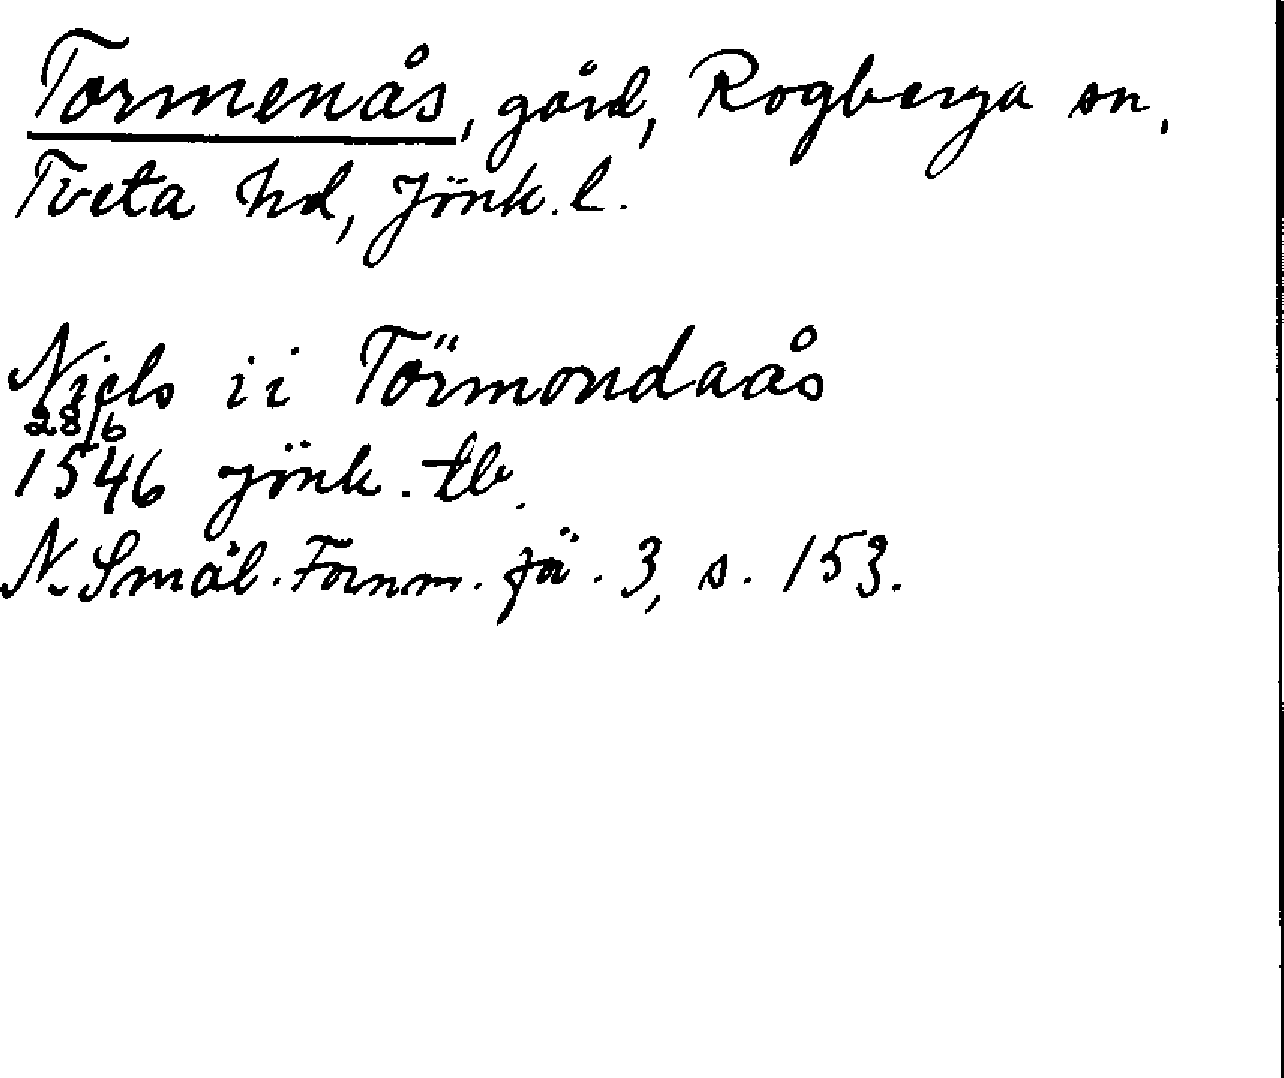 Tormenås, gård, Rogberga sn.
Tveta hd, Jönk. l.
Niels i i Törmondaås
28/6
1546 Jönk. tb.
N. Smål. Fornm. fö. 3, s. 153.